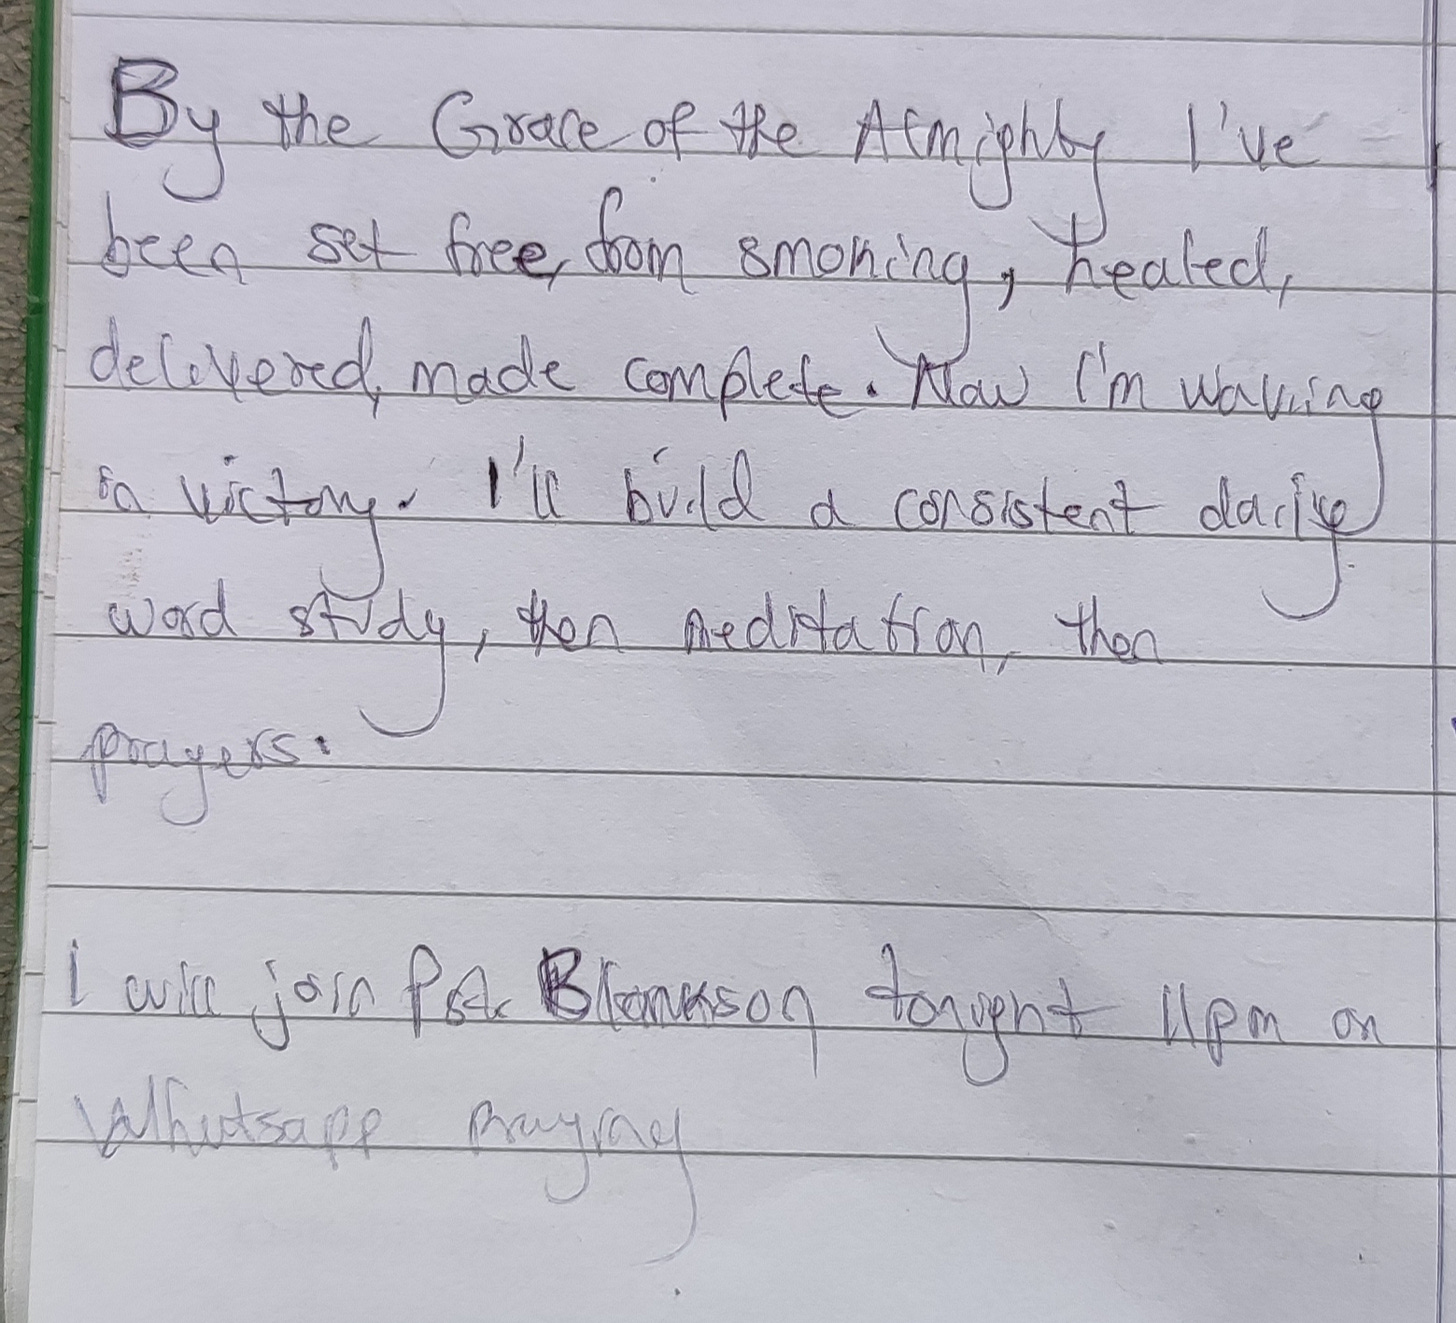 By the Grace of the Almighty I've
been set free, from smoking, healed,
delivered, made complete. Now I'm walking
in victory. I'll build a consistent daily
word study, then meditation, then
prayers.
I will join Pst. Blankson tonight 11pm on
Whatsapp praying